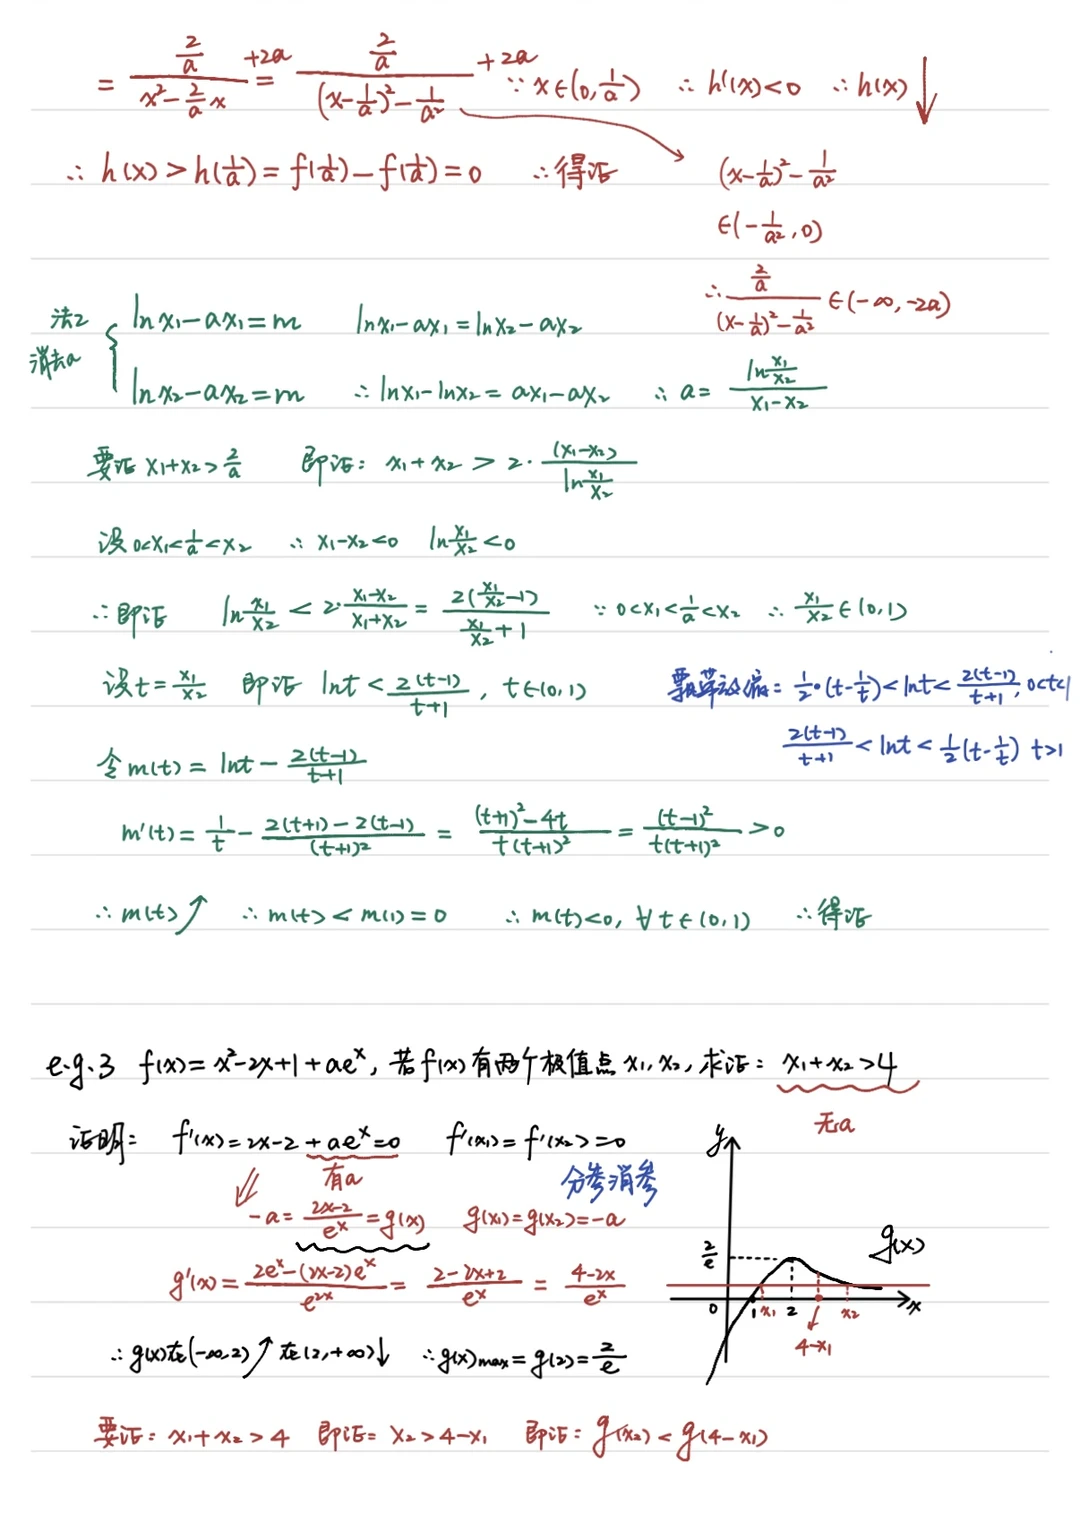 = \frac{\frac{2}{a}}{x²-\frac{2}{a}x}+2a = \frac{\frac{2}{a}}{(x-\frac{1}{a})²-\frac{1}{a²}}+2a ∵ x∈(0,\frac{1}{a}) ∴ h'(x)<0 ∴ h(x)↓
∴ h(x)>h(\frac{1}{a})=f(\frac{1}{a})-f(\frac{1}{a})=0 ∴得证 (x-\frac{1}{a})²-\frac{1}{a²}
∈(-\frac{1}{a²},0)
∴\frac{\frac{2}{a}}{(x-\frac{1}{a})²-\frac{1}{a²}}∈(-∞,-2a)
法2 lnx₁-ax₁=m lnx₁-ax₁=lnx₂-ax₂
消去a
lnx₂-ax₂=m ∴lnx₁-lnx₂=ax₁-ax₂ ∴a=\frac{ln\frac{x₁}{x₂}}{x₁-x₂}
要证 x₁+x₂>\frac{2}{a} 即证: x₁+x₂ > 2·\frac{(x₁-x₂)}{ln\frac{x₁}{x₂}}
设 0<x₁<\frac{1}{a}<x₂ ∴ x₁-x₂<0 ln\frac{x₁}{x₂}<0
∴即证 ln\frac{x₁}{x₂} < 2·\frac{x₁-x₂}{x₁+x₂} = \frac{2(\frac{x₁}{x₂}-1)}{\frac{x₁}{x₂}+1} ∵ 0<x₁<\frac{1}{a}<x₂ ∴ \frac{x₁}{x₂}∈(0,1)
设t=\frac{x₁}{x₂} 即证 lnt<\frac{2(t-1)}{t+1}, t∈(0,1) 飘带放缩: \frac{1}{2}·(t-\frac{1}{t})<lnt<\frac{2(t-1)}{t+1}, 0<t<1
\frac{2(t-1)}{t+1}<lnt<\frac{1}{2}(t-\frac{1}{t}) t>1
令m(t)=lnt-\frac{2(t-1)}{t+1}
m'(t)=\frac{1}{t}-\frac{2(t+1)-2(t-1)}{(t+1)²}=\frac{(t+1)²-4t}{t(t+1)²}=\frac{(t-1)²}{t(t+1)²}>0
∴m(t)↗ ∴m(t)<m(1)=0 ∴m(t)<0, ∀t∈(0,1) ∴得证
e.g.3 f(x)=x²-2x+1+aeˣ, 若f(x)有两个极值点x₁,x₂, 求证: x₁+x₂>4
无a
证明: f'(x)=2x-2+aeˣ=0 f'(x₁)=f'(x₂)=0
有a 分参消参
-a=\frac{2x-2}{eˣ}=g(x) g(x₁)=g(x₂)=-a
g'(x)=\frac{2eˣ-(2x-2)eˣ}{e²ˣ}=\frac{2-2x+2}{eˣ}=\frac{4-2x}{eˣ}
∴g(x)在(-∞,2)↗在(2,+∞)↓ ∴g(x)max=g(2)=\frac{2}{e}
y
\frac{2}{e} g(x)
0 1 x₁ 2 x₂ x
4-x₁
要证: x₁+x₂>4 即证: x₂>4-x₁ 即证: g(x₂)<g(4-x₁)